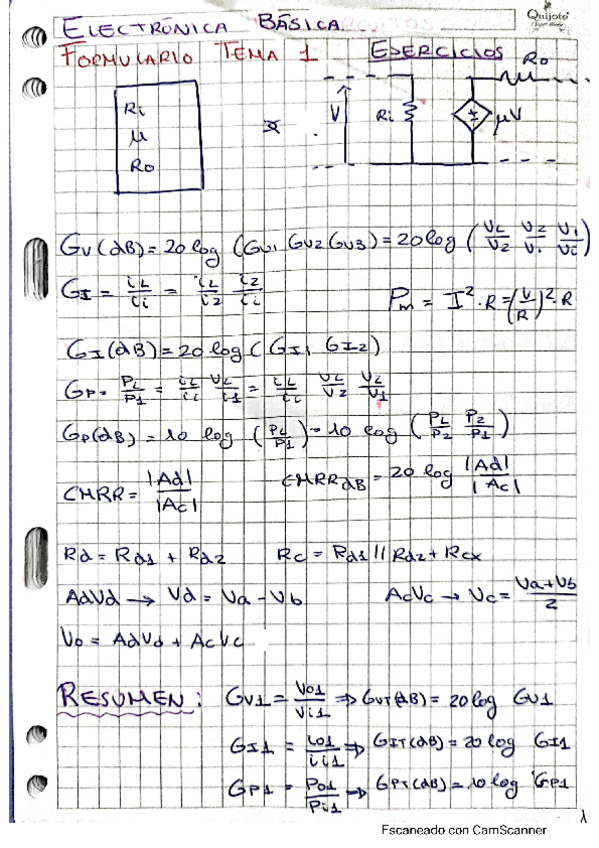 Quijote
ELECTRÓNICA BÁSICA
FORMULARIO TEMA 1 EJERCICIOS
Ro
Ri
μ
Ro
V
Ri
μV
Gv(dB) = 20 log (Gv1 Gv2 Gv3) = 20 log (VL/V2 V2/V1 V1/Vi)
GI = iL/ii = iL/i2 i2/ii
Pm = I²·R = (V/R)²·R
GI(dB) = 20 log (GI1 GI2)
GP = PL/P1 = iL/ii VL/i1 = iL/ii VL/V2 V2/V1
GP(dB) = 10 log (PL/P1) = 10 log (PL/P2 P2/P1)
CMRR = |Ad|/|Ac| CMRRdB = 20 log |Ad|/|Ac|
Rd = Rd1 + Rd2 Rc = Rd1 || Rd2 + Rcx
AdVd → Vd = Va - Vb AcVc → Vc = Va+Vb/2
Vo = AdVd + AcVc
RESUMEN: Gv1 = Vo1/Vi1 ⇒ GvT(dB) = 20 log Gv1
GI1 = io1/ii1 ⇒ GIT(dB) = 20 log GI1
GP1 = Po1/Pi1 → GPT(dB) = 10 log GP1
1
Escaneado con CamScanner